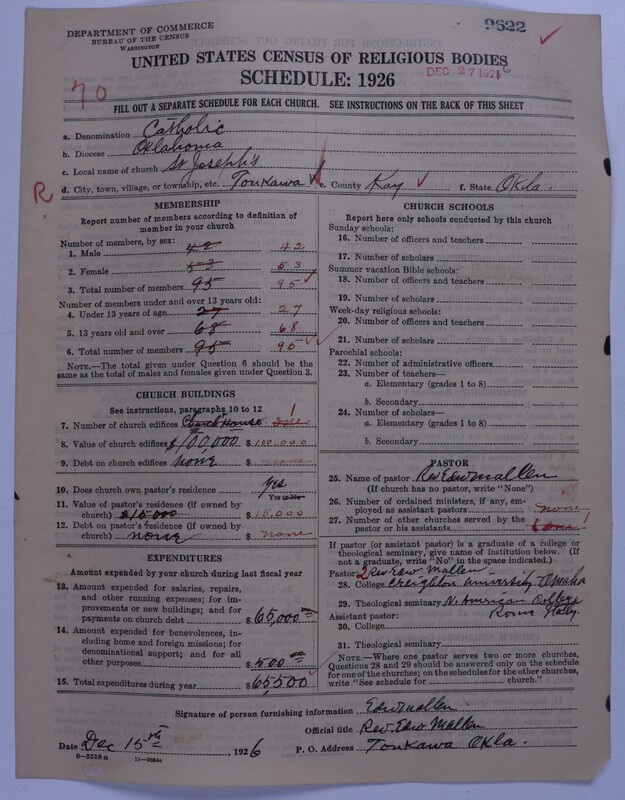 DEPARTMENT OF COMMERCE
BUREAU OF THE CENSUS
WASHINGTON
9622
UNITED STATES CENSUS OF RELIGIOUS BODIES
SCHEDULE: 1926
DEC 27 1926
70
FILL OUT A SEPARATE SCHEDULE FOR EACH CHURCH. SEE INSTRUCTIONS ON THE BACK OF THIS SHEET
a. Denomination Catholic
b. Diocese Oklahoma
c. Local name of church St Joseph's
R
d. City, town, village, or township, etc. Tonkawa e. County Kay f. State Okla.
MEMBERSHIP
Report number of members according to definition of
member in your church
Number of members, by sex:
1. Male 42 42
2. Female 53 53
3. Total number of members 95 95
Number of members under and over 13 years old:
4. Under 13 years of age 27 27
5. 13 years old and over 68 68
6. Total number of members 95 95
NOTE.—The total given under Question 6 should be
the same as the total of males and females given under Question 3.
CHURCH BUILDINGS
See instructions, paragraphs 10 to 12
7. Number of church edifices Church House 1
8. Value of church edifices $100,000 $100,000
9. Debt on church edifices none none
10. Does church own pastor's residence yes
Yes or No
11. Value of pastor's residence (if owned by
church) $15,000 $15,000
12. Debt on pastor's residence (if owned by
church) none $ none
EXPENDITURES
Amount expended by your church during last fiscal year
13. Amount expended for salaries, repairs,
and other running expenses; for im-
provements or new buildings; and for
payments on church debt $65,000 00
14. Amount expended for benevolences, in-
cluding home and foreign missions; for
denominational support; and for all
other purposes $500 00
15. Total expenditures during year $65,500
CHURCH SCHOOLS
Report here only schools conducted by this church
Sunday schools:
16. Number of officers and teachers
17. Number of scholars
Summer vacation Bible schools:
18. Number of officers and teachers
19. Number of scholars
Week-day religious schools:
20. Number of officers and teachers
21. Number of scholars
Parochial schools:
22. Number of administrative officers
23. Number of teachers—
a. Elementary (grades 1 to 8)
b. Secondary
24. Number of scholars—
a. Elementary (grades 1 to 8)
b. Secondary
PASTOR
25. Name of pastor Rev Edw Mallen
(If church has no pastor, write "None")
26. Number of ordained ministers, if any, em-
ployed as assistant pastors none
27. Number of other churches served by the
pastor or his assistants 1
If pastor (or assistant pastor) is a graduate of a college or
theological seminary, give name of institution below. (If
not a graduate, write "No" in the space indicated.)
Pastor: Rev. Edw Mallen
28. College Creighton University Omaha
29. Theological seminary N. American College
Assistant pastor: Rome Italy.
30. College
31. Theological seminary
NOTE.—Where one pastor serves two or more churches,
Questions 28 and 29 should be answered only on the schedule
for one of the churches; on the schedules for the other churches,
write "See schedule for church."
Signature of person furnishing information Edw Mallen
Official title Rev. Edw Mallen
Date Dec 15th, 1926 P. O. Address Tonkawa Okla.
8—5518 a